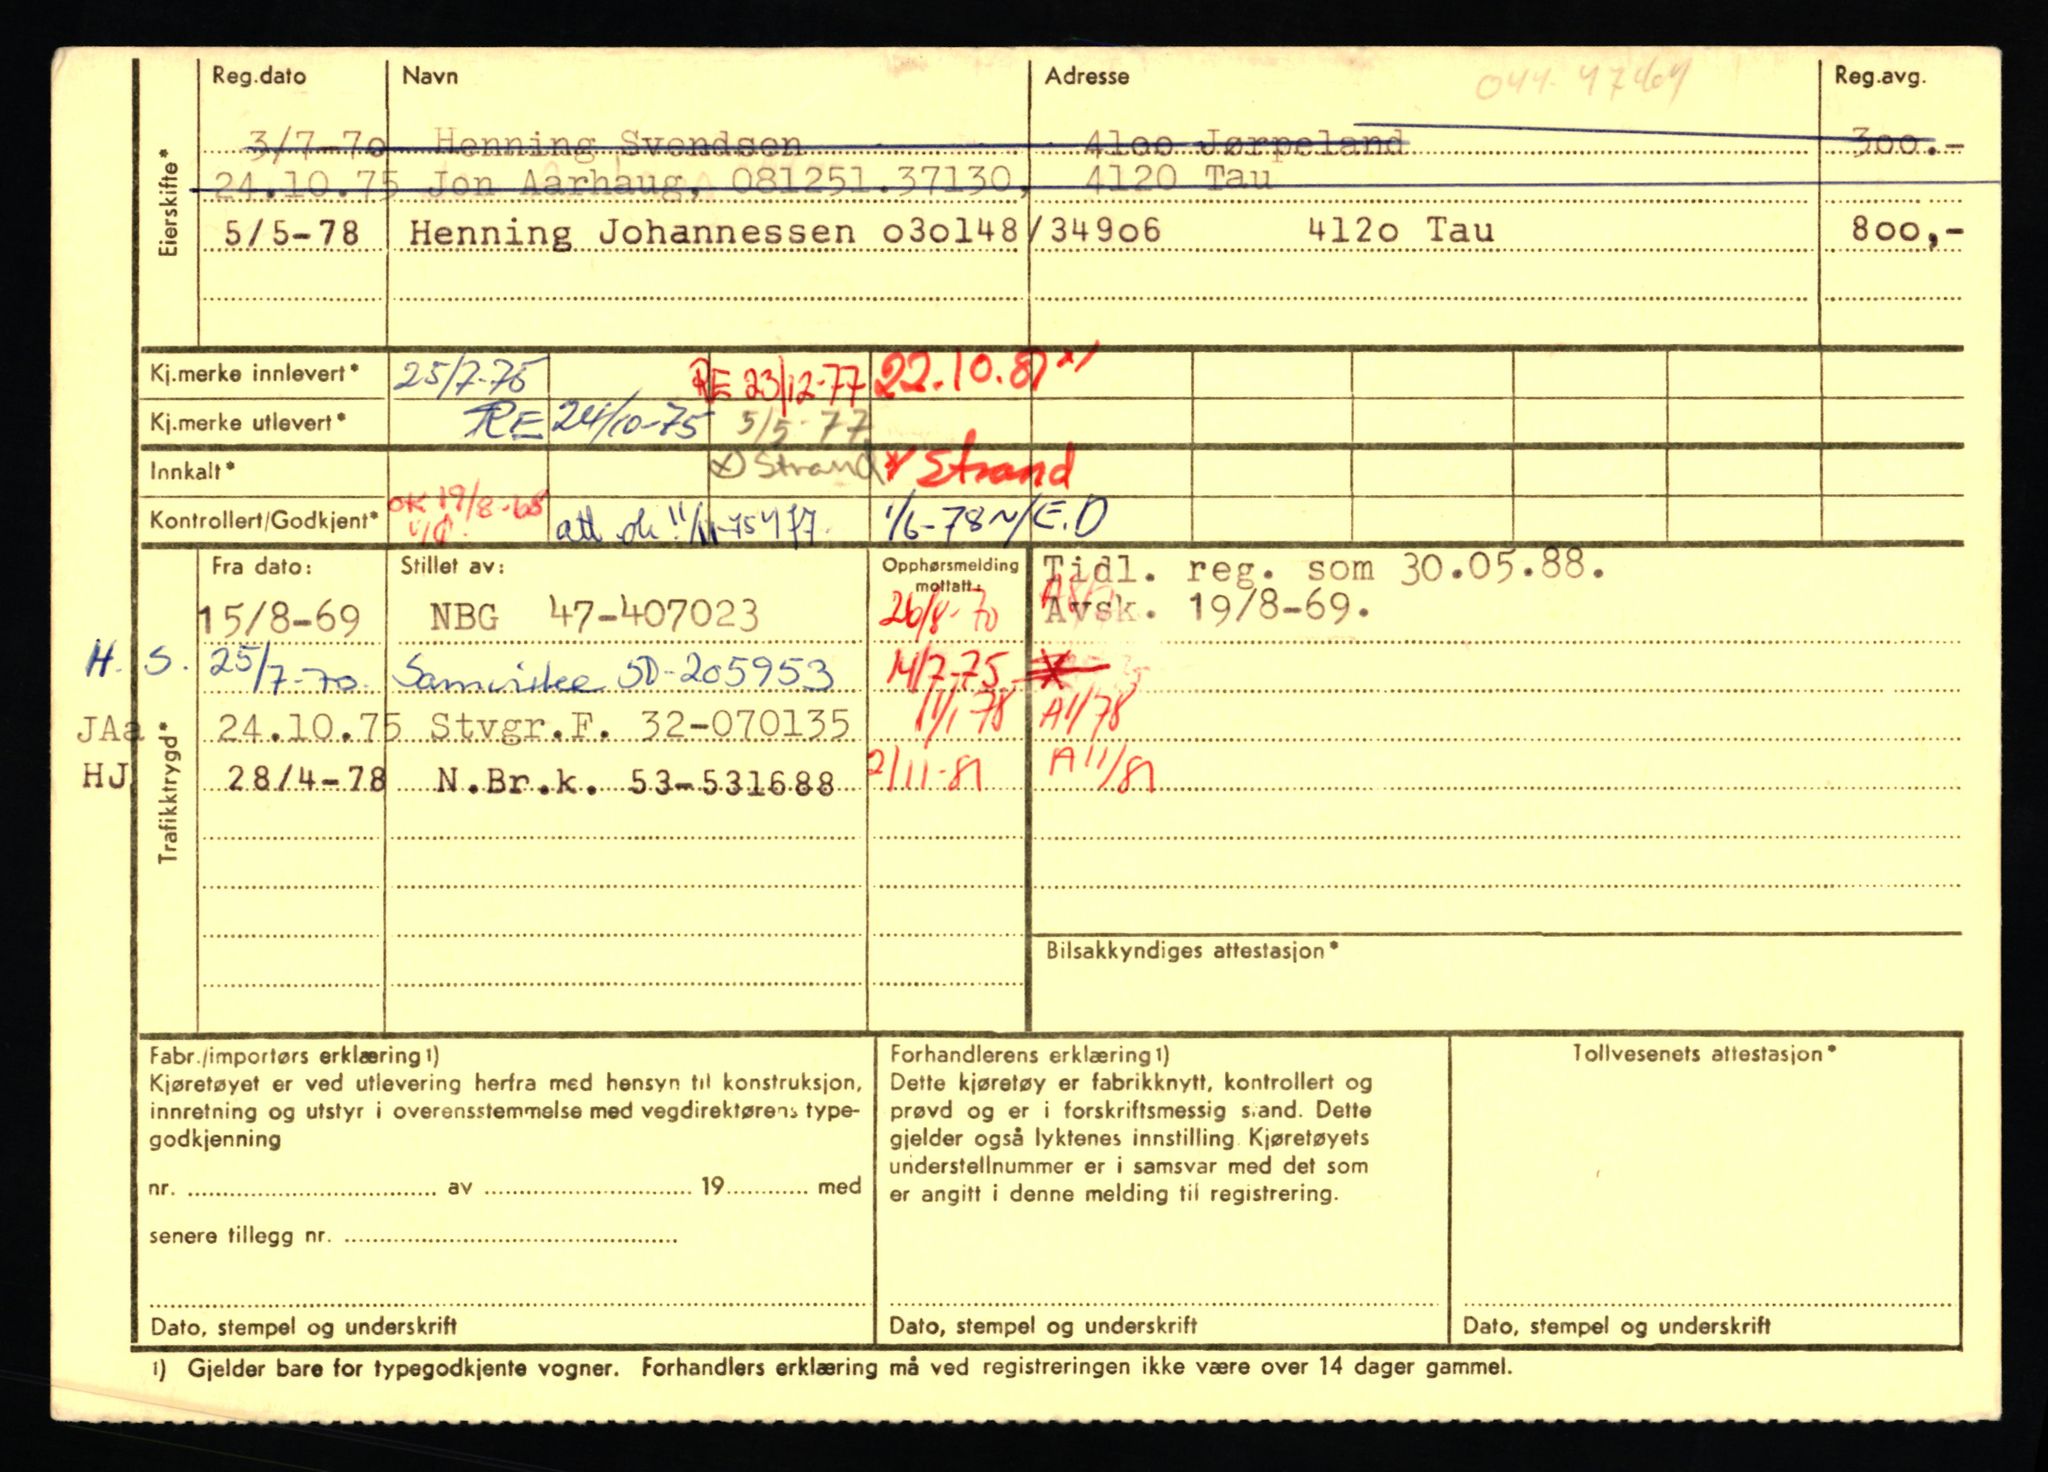 Reg.dato Navn Adresse Reg.avg.
Eierskifte*
3/7-7o Henning Svendsen 41oo Jørpeland 3oo.-
24.10.75 Jon Aarhaug, 081251.37130, 4120 Tau
5/5-78 Henning Johannessen o3o148/349o6 412o Tau 8oo,-
Kj.merke innlevert* 25/7-75 RE 23/12-77 22.10.81 x/
Kj.merke utlevert* RE 24/10-75 5/5-77
Innkalt* x) Strand x/ Strand
Kontrollert/Godkjent* OK 19/8-68 att ok 11/11-75 1/6-78 N/E.D
Fra dato: Stillet av: Opphørsmelding mottatt Tidl. reg. som 30.05.88.
15/8-69 NBG 47-407023 26/8-70 Avsk. 19/8-69.
H. S. 25/7-70 Samvirke SD-205953 14/7-75
JAa 24.10.75 Stvgr.F. 32-070135 11/1-78 A1/78
HJ 28/4-78 N.Br.k. 53-531688 2/11-81 A11/81
Trafikktrygd*
Bilsakkyndiges attestasjon*
Fabr./importørs erklæring 1)
Kjøretøyet er ved utlevering herfra med hensyn til konstruksjon,
innretning og utstyr i overensstemmelse med vegdirektørens type-
godkjenning
nr. av 19 med
senere tillegg nr.
Dato, stempel og underskrift
Forhandlerens erklæring 1)
Dette kjøretøy er fabrikknytt, kontrollert og
prøvd og er i forskriftsmessig stand. Dette
gjelder også lyktenes innstilling. Kjøretøyets
understellnummer er i samsvar med det som
er angitt i denne melding til registrering.
Dato, stempel og underskrift
Tollvesenets attestasjon*
Dato, stempel og underskrift
1) Gjelder bare for typegodkjente vogner. Forhandlers erklæring må ved registreringen ikke være over 14 dager gammel.